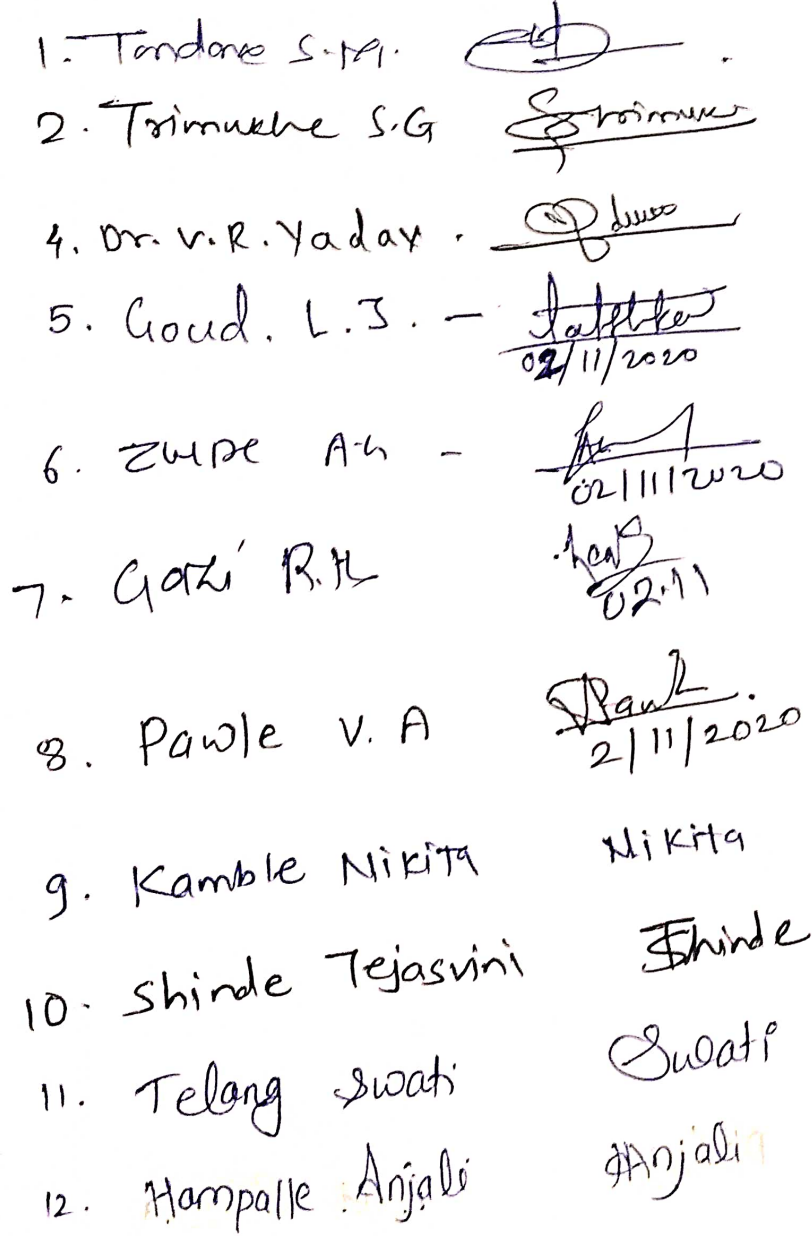 1. Tandore S.M.
2. Trimukhe S.G Strimuke
4. Dr. V.R. Yadav.
5. Goud. L.J. -
02/11/2020
6. Zulpe A.G -
02/11/2020
7. Gazi R.H
02.11
8. Pawle V. A
2/11/2020
9. Kamble Nikita Nikita
10. Shinde Tejasvini Shinde
11. Telang Swati Swati
12. Hampalle Anjali Anjali